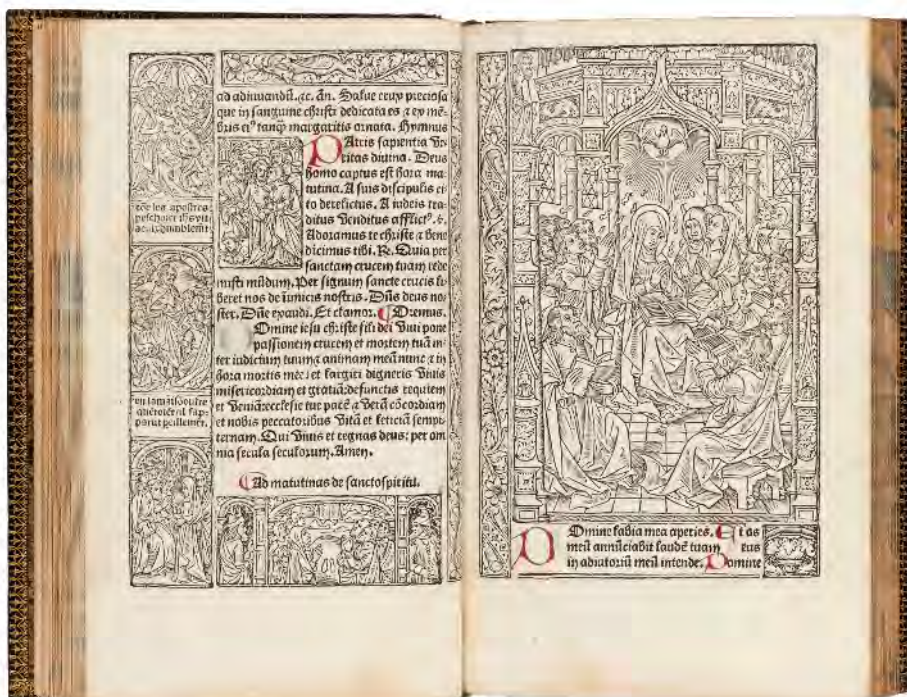 ad adiuuandū.⁊c. Añ. Salue crux preciosa
que in sanguine christi dedicata es ⁊ ex mē-
bris eiꝰ tanq̄ margaritis ornata. Hymnus
PAtris sapientia ve-
ritas diuina. Deus
homo captus est hora ma-
tutina. A suis discipulis ci-
to derelictus. A iudeis tra-
ditus venditus afflictꝰ. ℣.
Adoramus te christe ⁊ bene
dicimus tibi. ℟. Quia per
sanctam crucem tuam rede
misti mūdum. Per signum sancte crucis li
beret nos de inimicis nostris. Dñs deus no-
ster. Dñe exaudi. Et clamor. Oremus.
Omine iesu christe fili dei viui pone
passionem crucem et mortem tuā in-
ter iudicium tuum ⁊ animam meā nunc ⁊ in
hora mortis mee: et largiri digneris viuis
misericordiam et gratiā: defunctis requiem
et veniā: ecclesie tue pacē ⁊ verā cōcordiam
et nobis peccatoribus vitā et leticiā sempi-
ternam. Qui viuis et regnas deus: per om
nia secula seculorum. Amen.
Ad matutinas de sanctospiritu.
les apostres
DOmine labia mea aperies. Et os
meū annūciabit laudē tuam eus
in adiutoriū meū intende. Domine